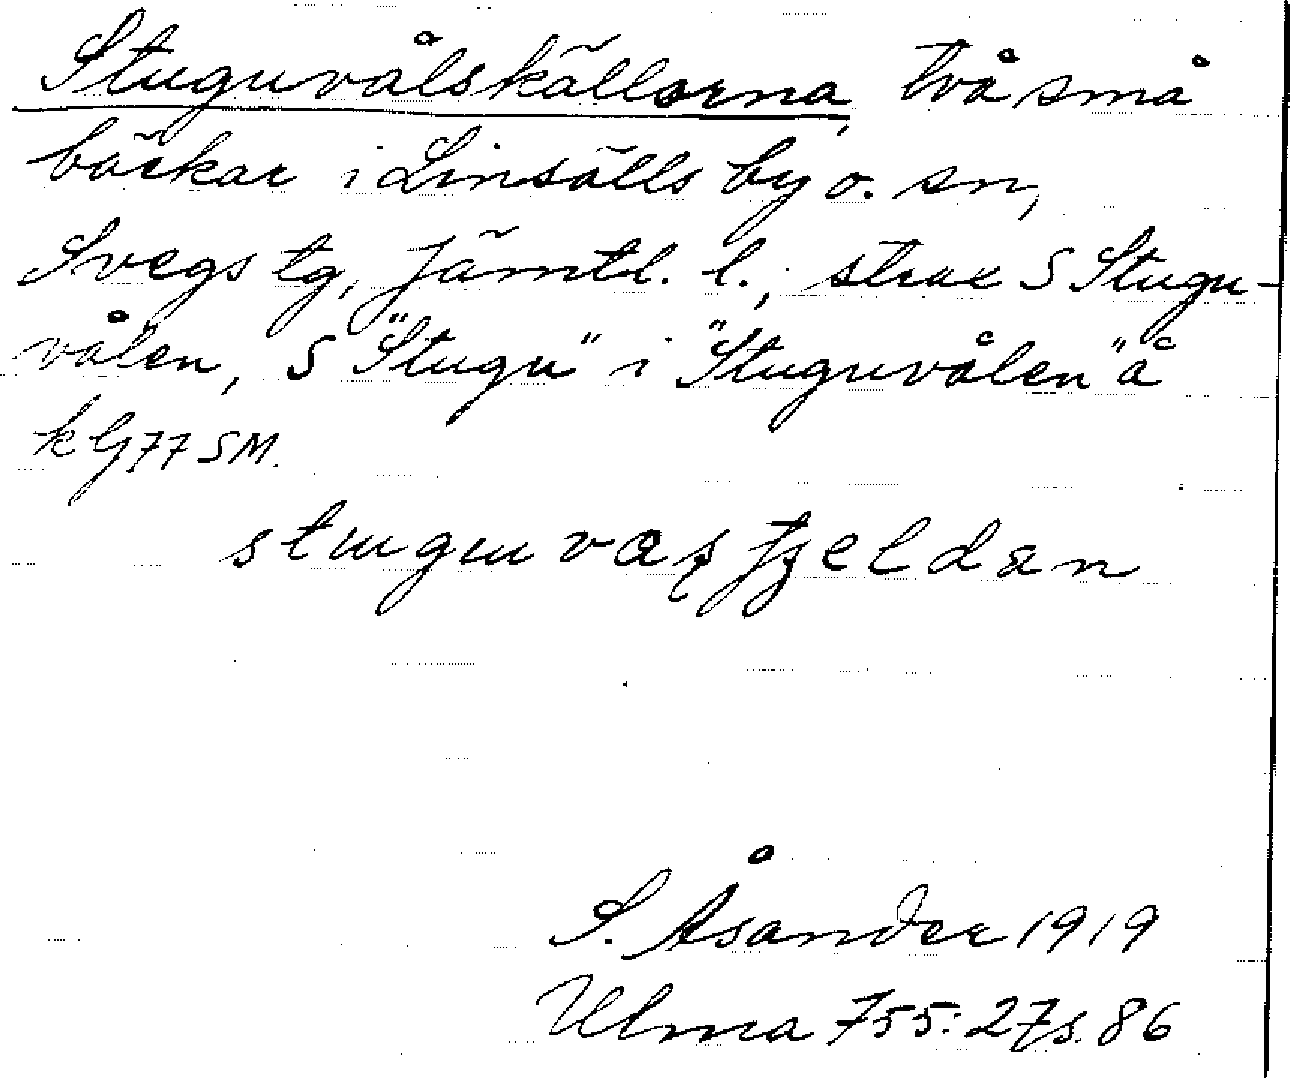 Stuguvålskällorna, två små
bäckar i Linsälls by o. sn,
Svegs tg, Jämtl. l., strax S Stugu-
vålen, S "Stugu" i "Stuguvålen" å
k G77 SM.
S. Åsander 1919
Ulma 755:27 s. 86